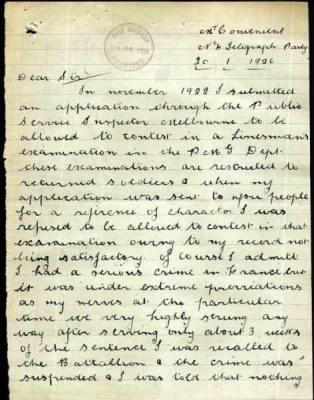 Mt Convenient
No 4 Telegraph Party
20 1 1926
Dear Sir
In november 1922 I submitted
an application through the Public
Service Inspector Melbourne to be
allowed to contest in a Linesman's
examination in the P M G Dept.
these examinations are restricted to
returned soldiers & when my
application was sent to your people
for a reference of character I was
refused to be allowed to contest in that
examination owing to my record not
being satisfactory. Of course I admit
I had a serious crime in France but
it was under extreme
as my nerves at the particular
time we very highly strung any
way after serving only about 3 weeks
of the sentence I was recalled to
the Battallion & the crime was
suspended & I was told that nothing